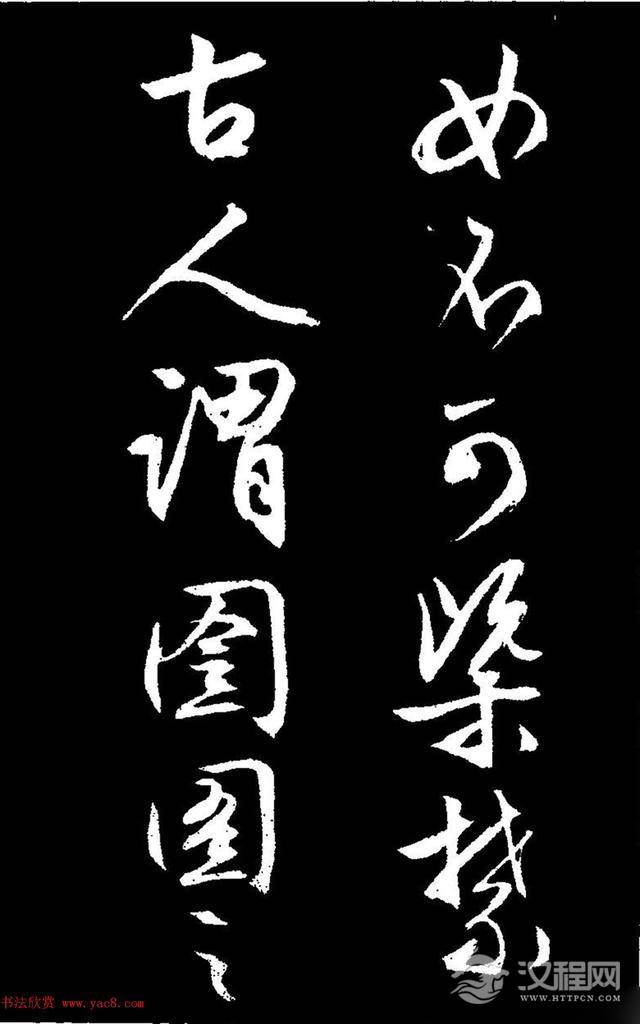 不可
古人謂囹圄之
书法欣赏 www.yac8.com
汉程网
WWW.HTTPCN.COM